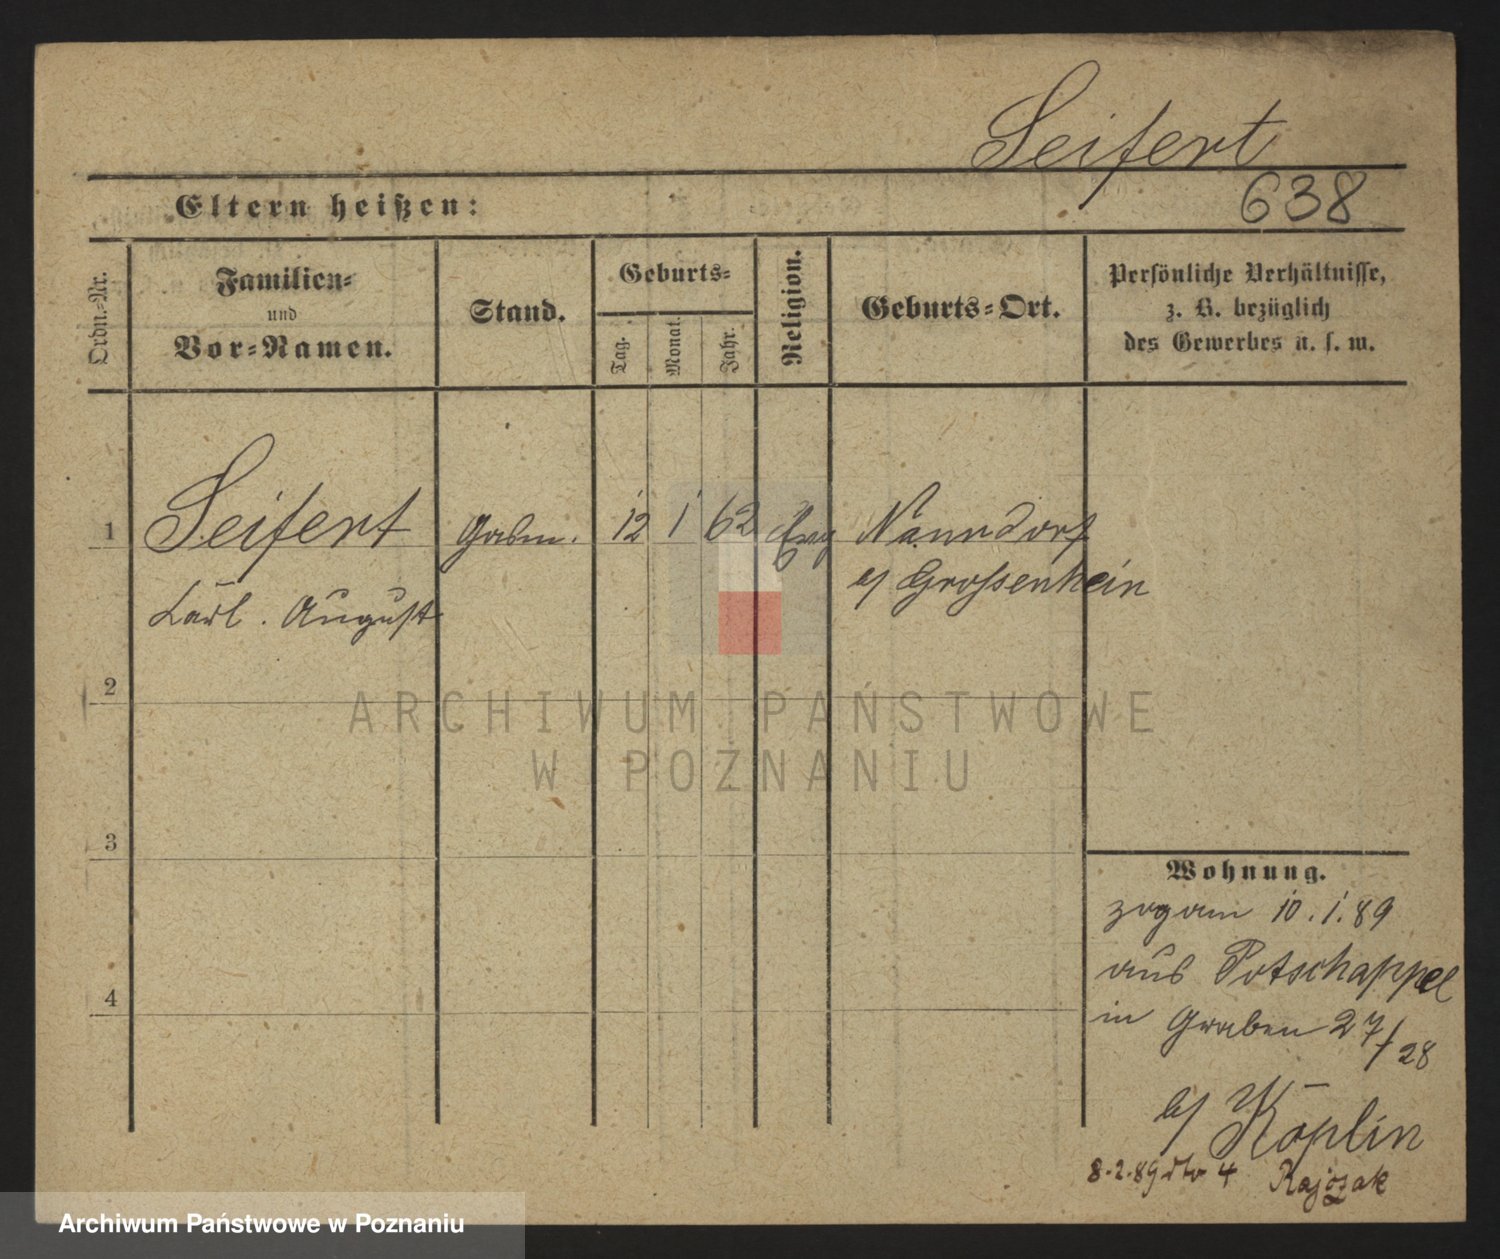 Seifert
638
Eltern heißen:
Ordn.-Nr.
Familien-
und
Vor-Namen.
Stand.
Geburts-
Tag.
Monat.
Jahr.
Religion.
Geburts-Ort.
Persönliche Verhältnisse,
z. B. bezüglich
des Gewerbes u. s. w.
1 Seifert 12 1 62 Evg Naundorf
Karl. August b/ Grossenhein
2
3
4
ARCHIWUM PAŃSTWOWE
W POZNANIU
Wohnung.
zog am 10.1.89
aus Potschappel
in Graben 27/28
b/ Köplin
8.2.89 dto 4 Rajczak
Archiwum Państwowe w Poznaniu